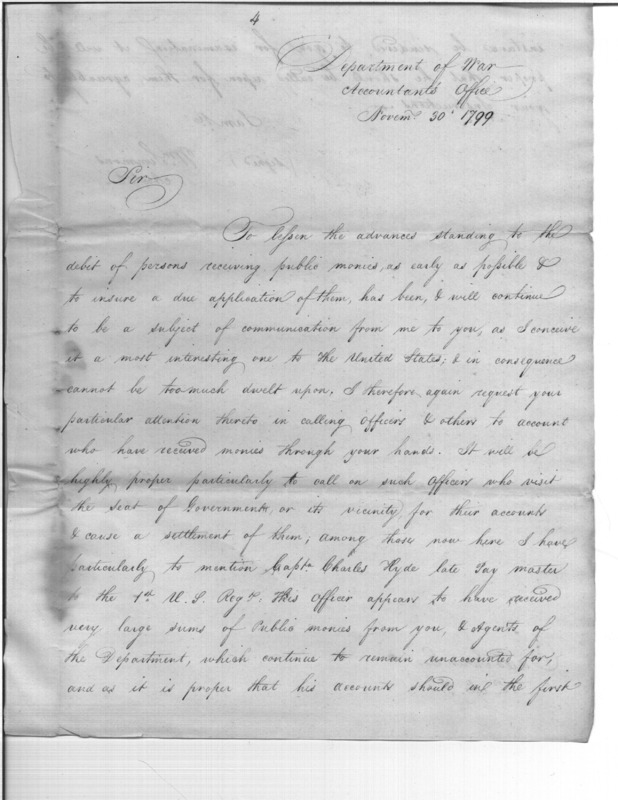 4
Department of War
Accountants Office
Novemr. 30th 1799
Sir
To lessen the advances standing to the
debit of persons receiving public monies, as early as possible &
to insure a due application of them, has been, & will continue
to be a subject of communication from me to you, as I conceive
it a most interesting one to the United States; & in consequence
cannot be too much dwelt upon. I therefore again request your
particular attention thereto in calling Officers & others to account
who have received monies through your hands. It will be
highly proper particularly to call on such Officers who visit
the Seat of Government, or its vicinity, for their accounts
& cause a settlement of them; among those now here I have
particularly to mention Captn. Charles Hyde late Pay master
to the 1st U. S. Regt: this Officer appears to have received
very large sums of Public monies from you, & Agents of
the Department, which continue to remain unaccounted for,
and as it is proper that his accounts should in the first